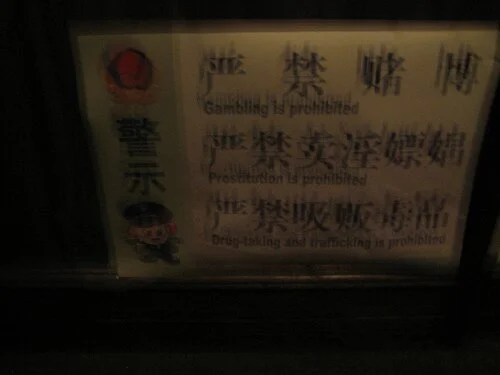 警示
严禁赌博
Gambling is prohibited
严禁卖淫嫖娼
Prostitution is prohibited
严禁吸贩毒品
Drug-taking and trafficking is prohibited